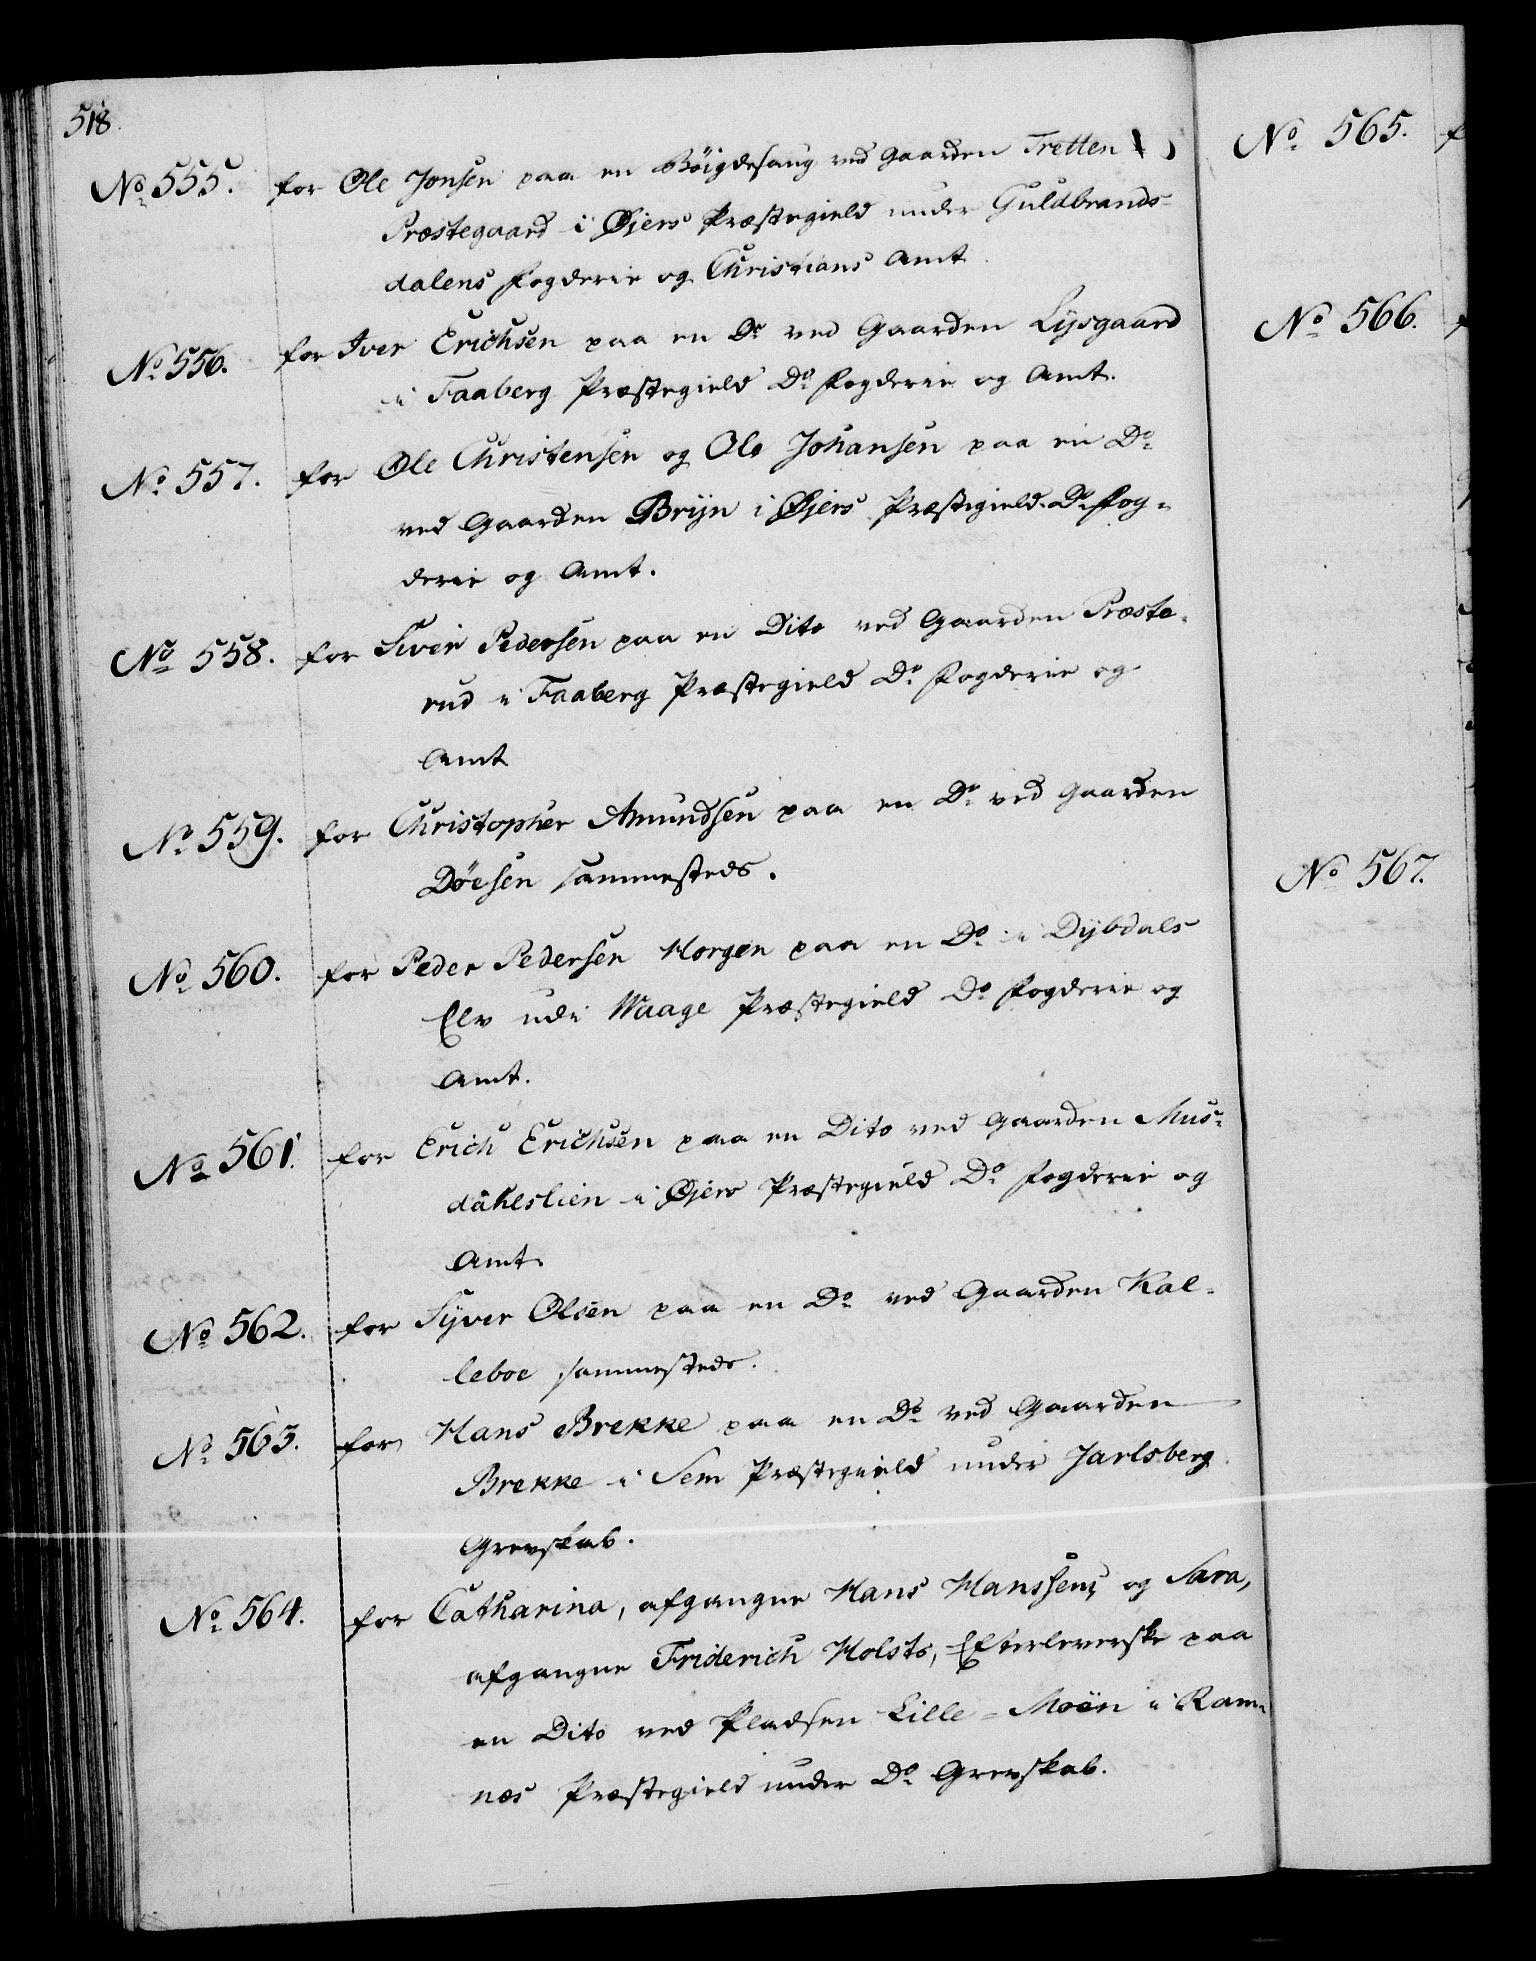 518.
No 555. for Ole Jonsen paa en Böigdesaug ved Gaarden Tretten
Præstegaard i Øjers Præstegield under Guldbrands-
dalens Fogderie og Christians Amt.
No 556. for Iver Erichsen paa en Do ved Gaarden Lysgaard
i Faaberg Præstegield Do Fogderie og Amt.
No 557. for Ole Christensen og Ole Johansen paa en Do
ved Gaarden Bryn i Øjers Præstegield Do Fog-
derie og Amt.
No 558. for Siver Pedersen paa en Dito ved Gaarden Præste-
rud i Faaberg Præstegield Do Fogderie og
Amt
No 559. for Christopher Amundsen paa en Do ved Gaarden
Döesen sammesteds.
No 560. for Peder Pedersen Horgen paa en Do i Dybdals
Elv udi Waage Præstegield Do Fogderie og
Amt.
No 561. for Erich Erichsen paa en Dito ved Gaarden Mus-
dahlslien i Øjers Præstegield Do Fogderie og
Amt.
No 562. for Syver Olsen paa en Do ved Gaarden Kal-
leboe sammesteds.
No 563. for Hans Brekke paa en Do ved Gaarden
Brekke i Sem Præstegield under Jarlsberg
Grevskab.
No 564. for Catharina, afgangne Hans Hanssens og Sara,
afgangne Friderich Holsts, Efterleverske paa
en Dito ved Pladsen Lille-Moën i Ram-
næs Præstegield under Do Grevskab.
No 565. f
No 566.
No 567.